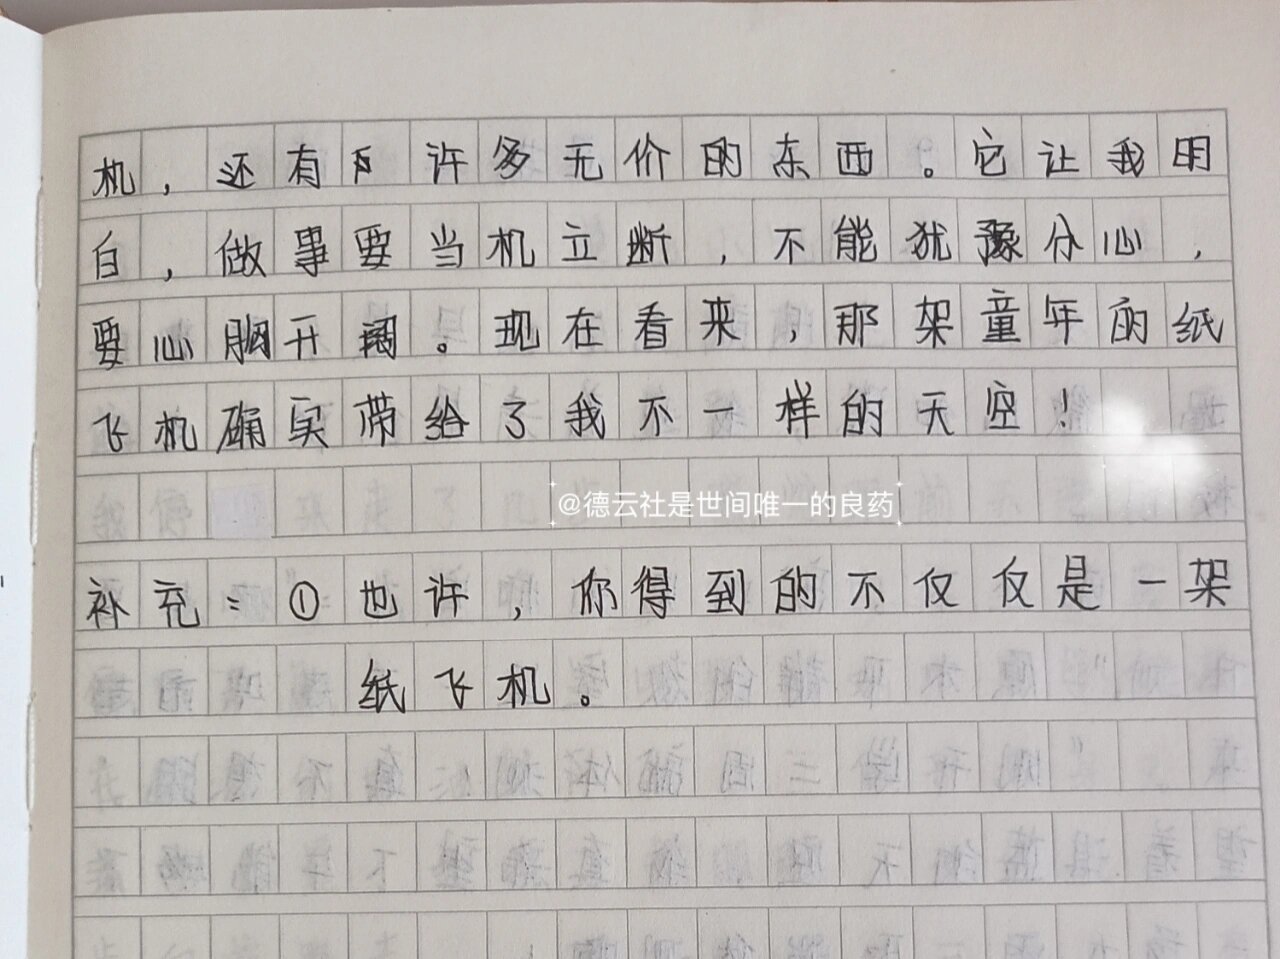 机，还有许多无价的东西。它让我明
白，做事要当机立断，不能犹豫分心，
要心胸开阔。现在看来，那架童年的纸
飞机确实带给了我不一样的天空！
@德云社是世间唯一的良药
补充：①也许，你得到的不仅仅是一架
纸飞机。